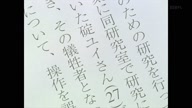 のための研究を行
に同研究室で研
いた碇ユイさん(27
き、その犠牲者とな
について、操作を誤